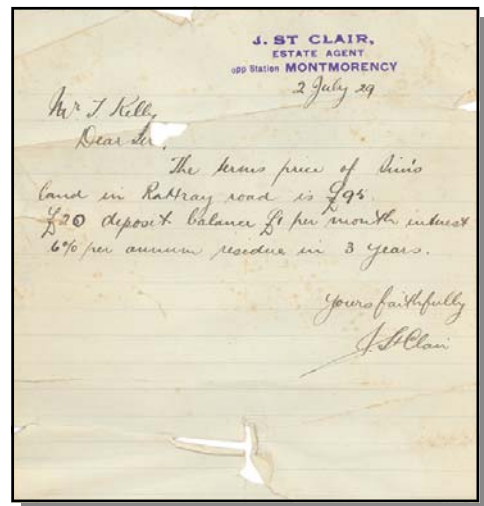 J. ST CLAIR,
ESTATE AGENT
opp Station MONTMORENCY
2 July 29
Mr T. Kelly
Dear Sir,
The terms price of Sim's
land in Rattray road is £95.
£20 deposit balance £1 per month interest
6% per annum residue in 3 years.
Yours faithfully
J. St Clair